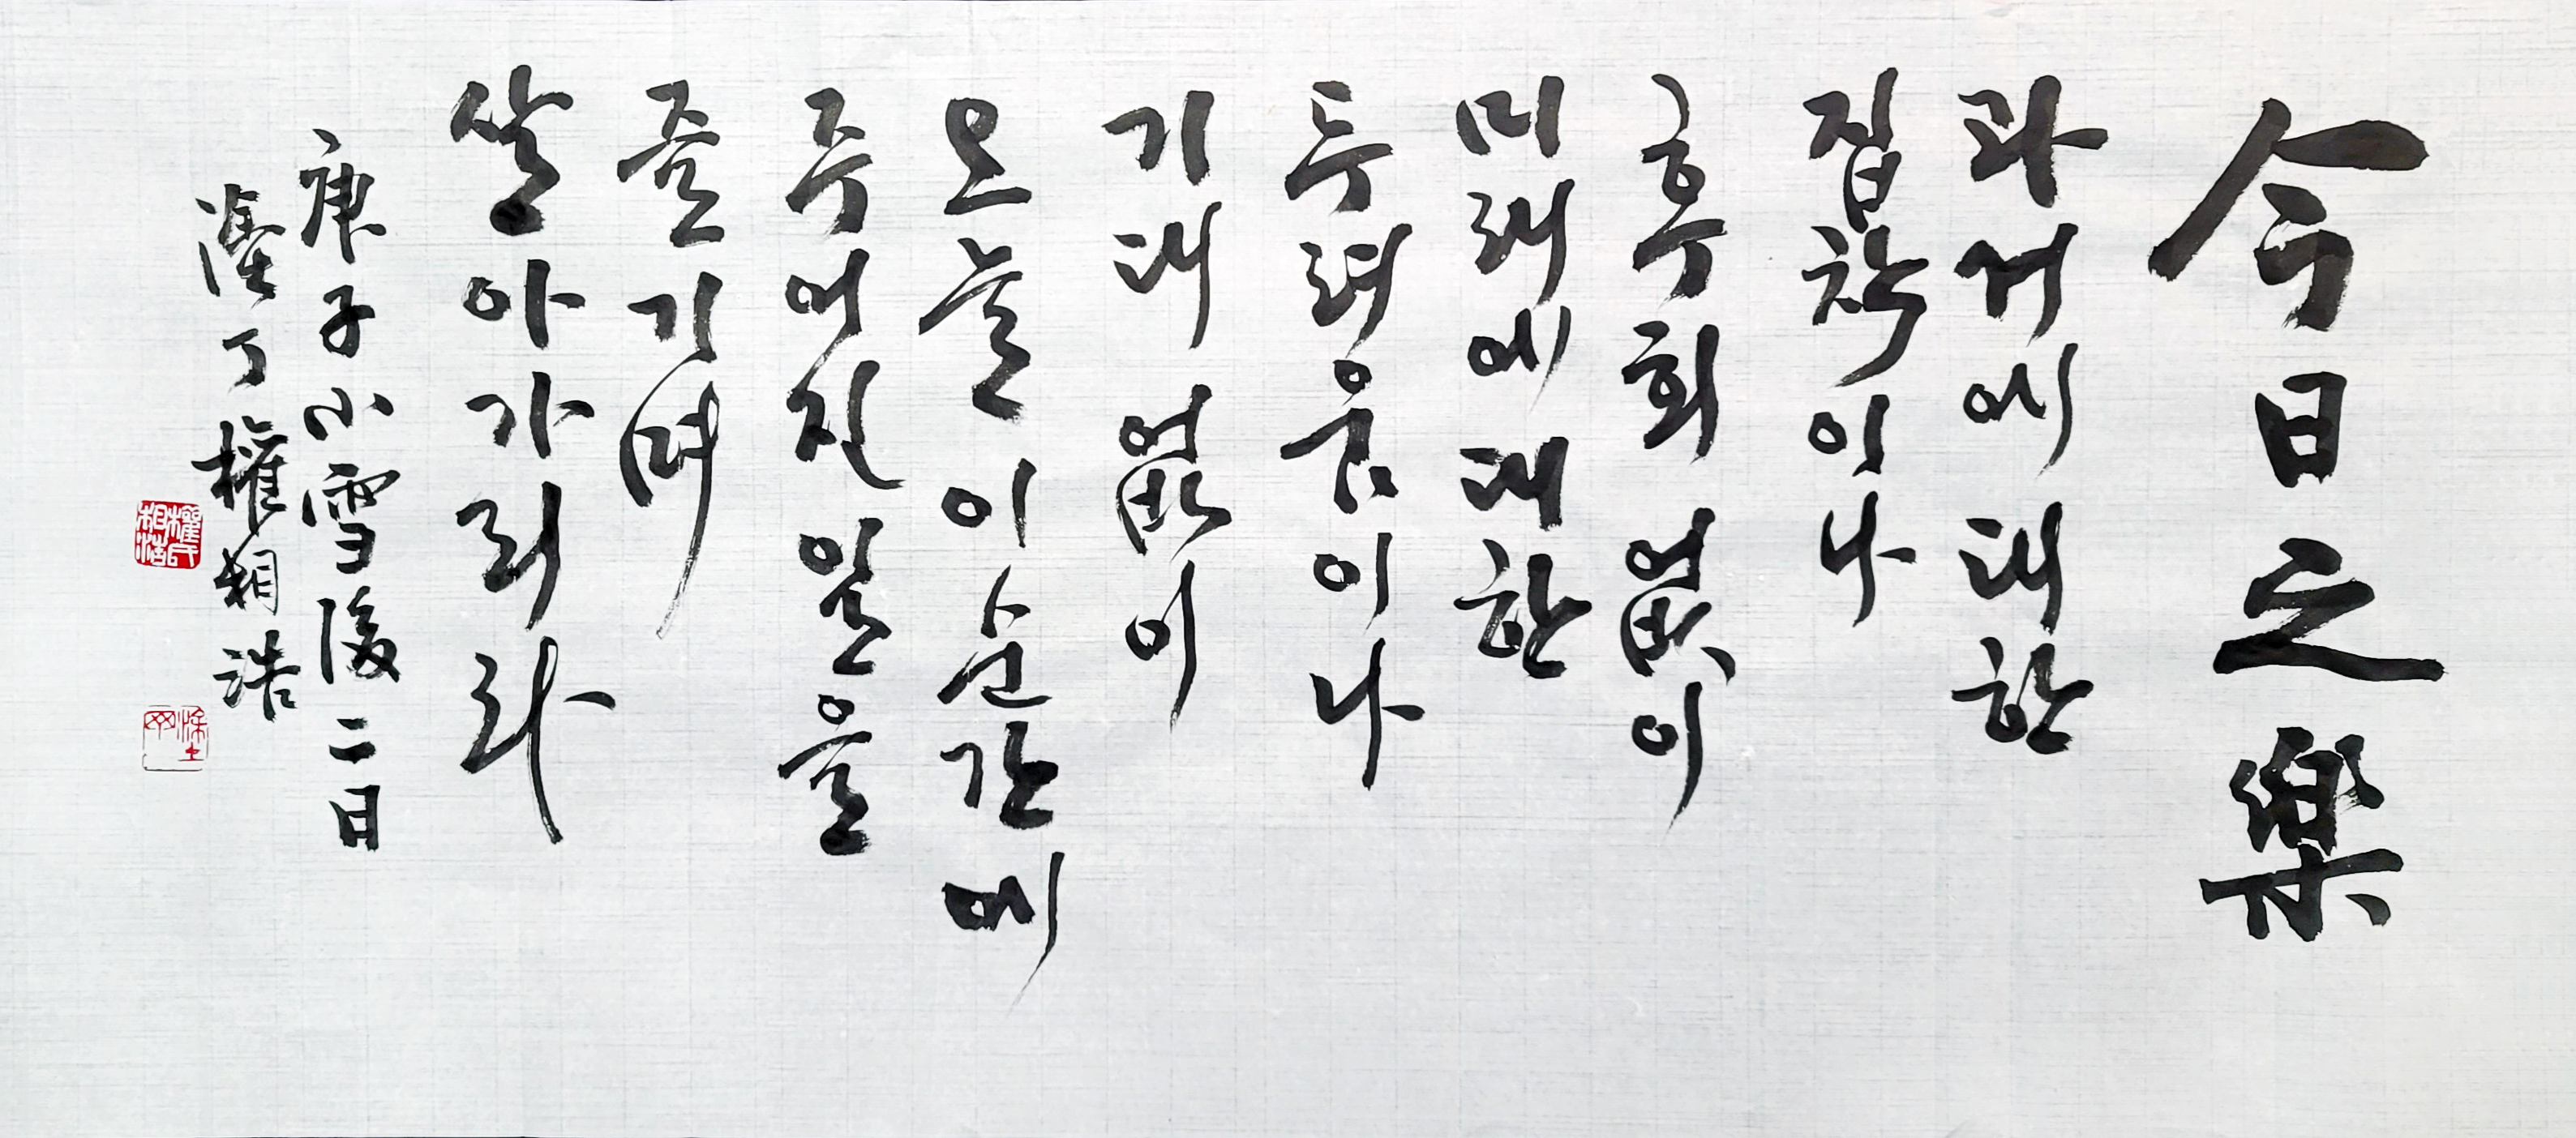 今日之樂
과거에 대한
집착이나
후회 없이
미래에 대한
두려움이나
기대 없이
오늘 이 순간에
주어진 일을
즐기며
살아가리라
庚子小雪後二日
塗丁 權相浩
權氏相浩